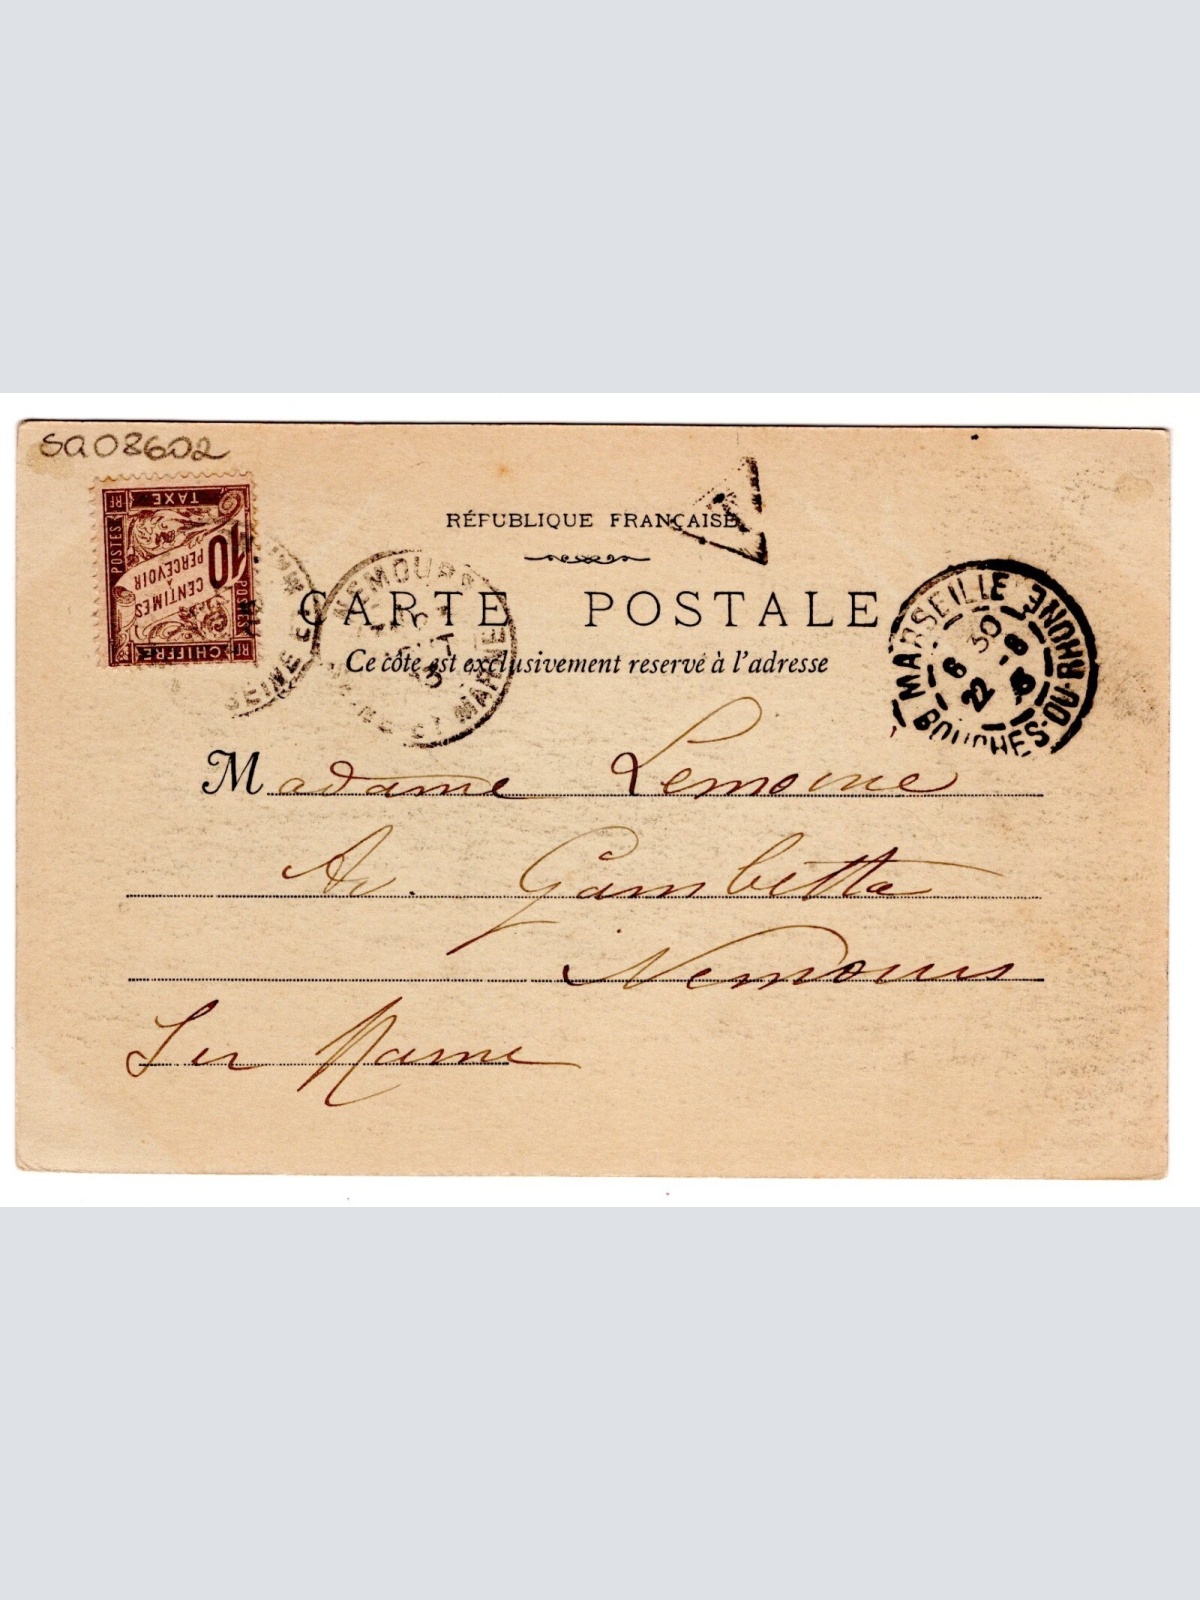 SA08602
RÉPUBLIQUE FRANÇAISE
CARTE POSTALE
Ce côté est exclusivement reservé à l'adresse
RF TAXE
POSTES
10
CENTIMES
À
PERCEVOIR
POSTES
CHIFFRE RF
T
SEINE ET
NEMOURS
SEINE ET MARNE
MARSEILLE
BOUCHES-DU-RHONE
6 30
22 -8
Madame Lemoine
Av. Gambetta
Nemours
Sei Marne